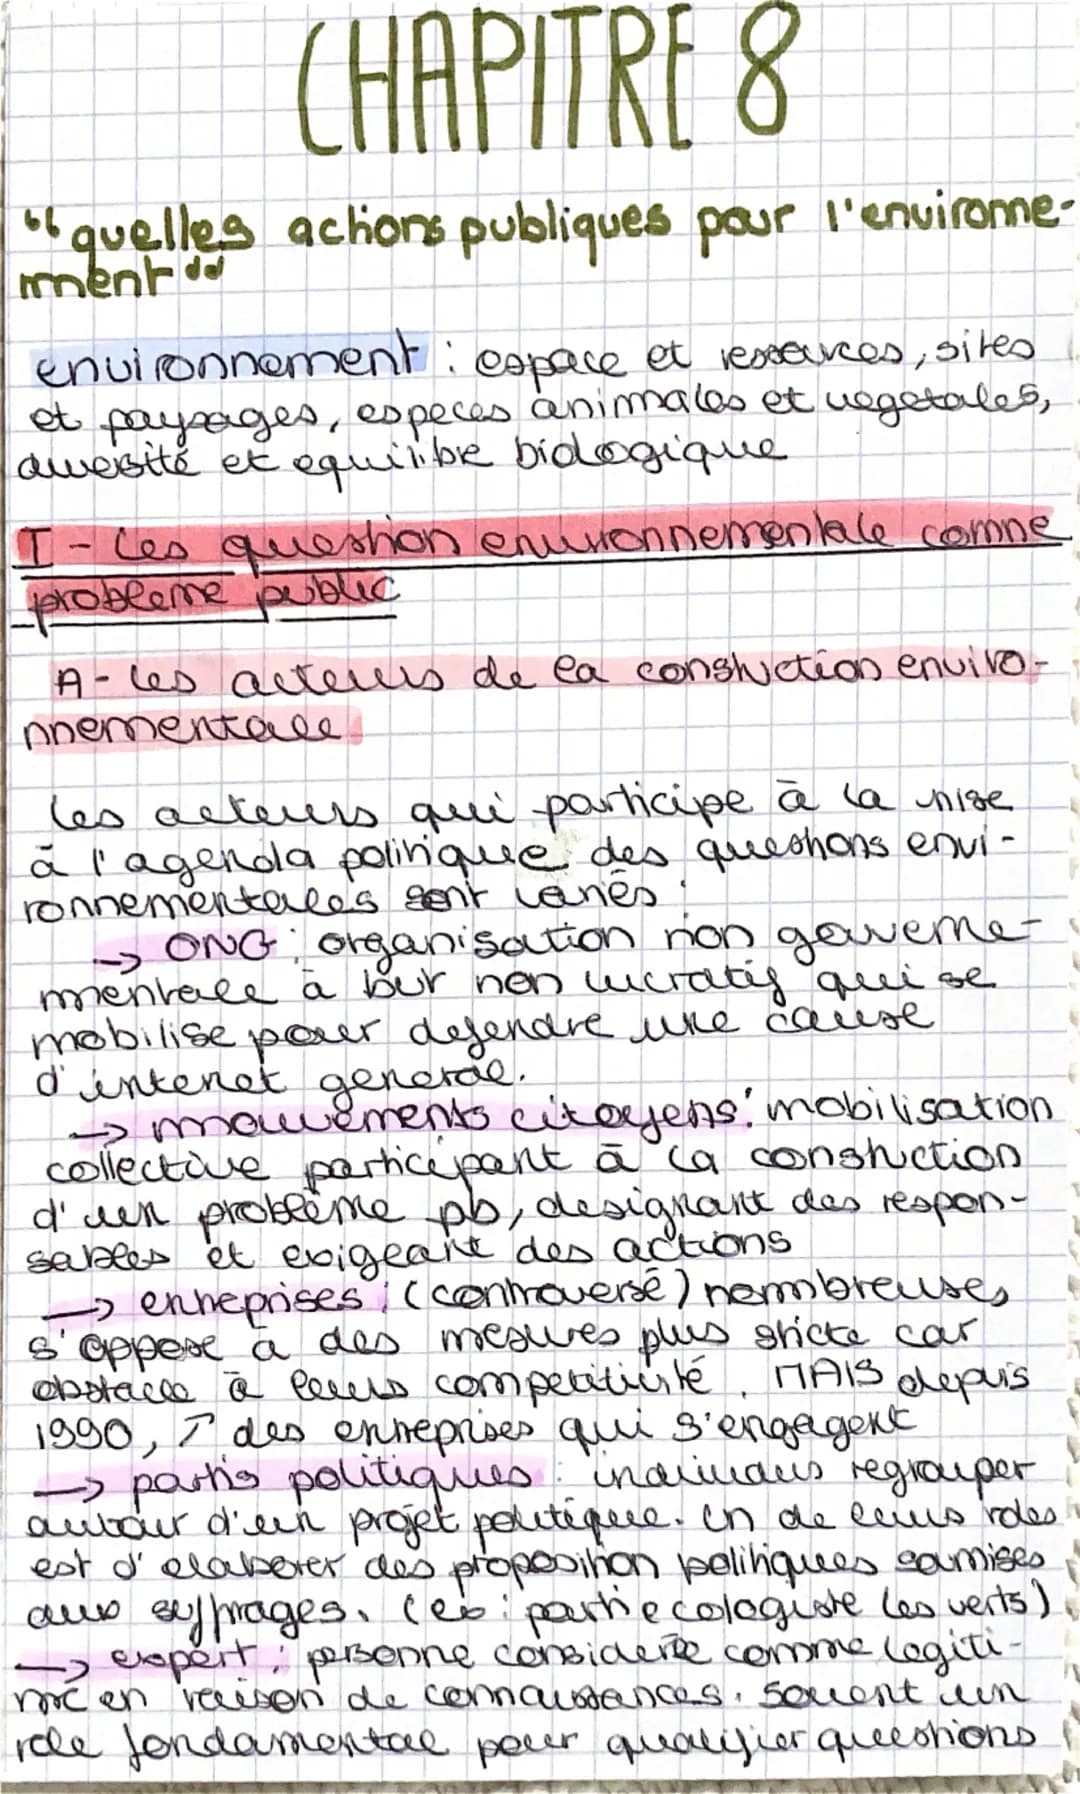 CHAPITRE 8
"quelles actions publiques pour l'environne-
ment"
environnement : espace et ressources, sites
et paysages, especes animales et vegetales,
diversité et equilibre biologique
I - Les question environnementale comme
probleme public
A - Les acteurs de la construction enviro-
nnementale
Les acteurs qui participe à la mise
à l'agenda politique des questions envi-
ronnementales sont variés :
→ ONG : organisation non gouverne-
mentale à but non lucratif qui se
mobilise pour defendre une cause
d'interet general.
→ mouvements citoyens : mobilisation
collective participant à la construction
d'un problème pb, designant des respon-
sables et exigeant des actions
→ entreprises : (controversé) nombreuses,
s'oppose à des mesures plus stricte car
obstacle à leurs competitivité. MAIS depuis
1990, ↗ des entreprises qui s'engagent
→ partis politiques : individus regrouper
autour d'un projet politique. Un de leurs roles
est d'elaborer des proposition politiques soumises
aux suffrages. (ex : partie ecologiste les verts)
→ expert : personne considerée comme legiti-
mé en raison de connaissances. Souvent un
role fondamental pour qualifier questions